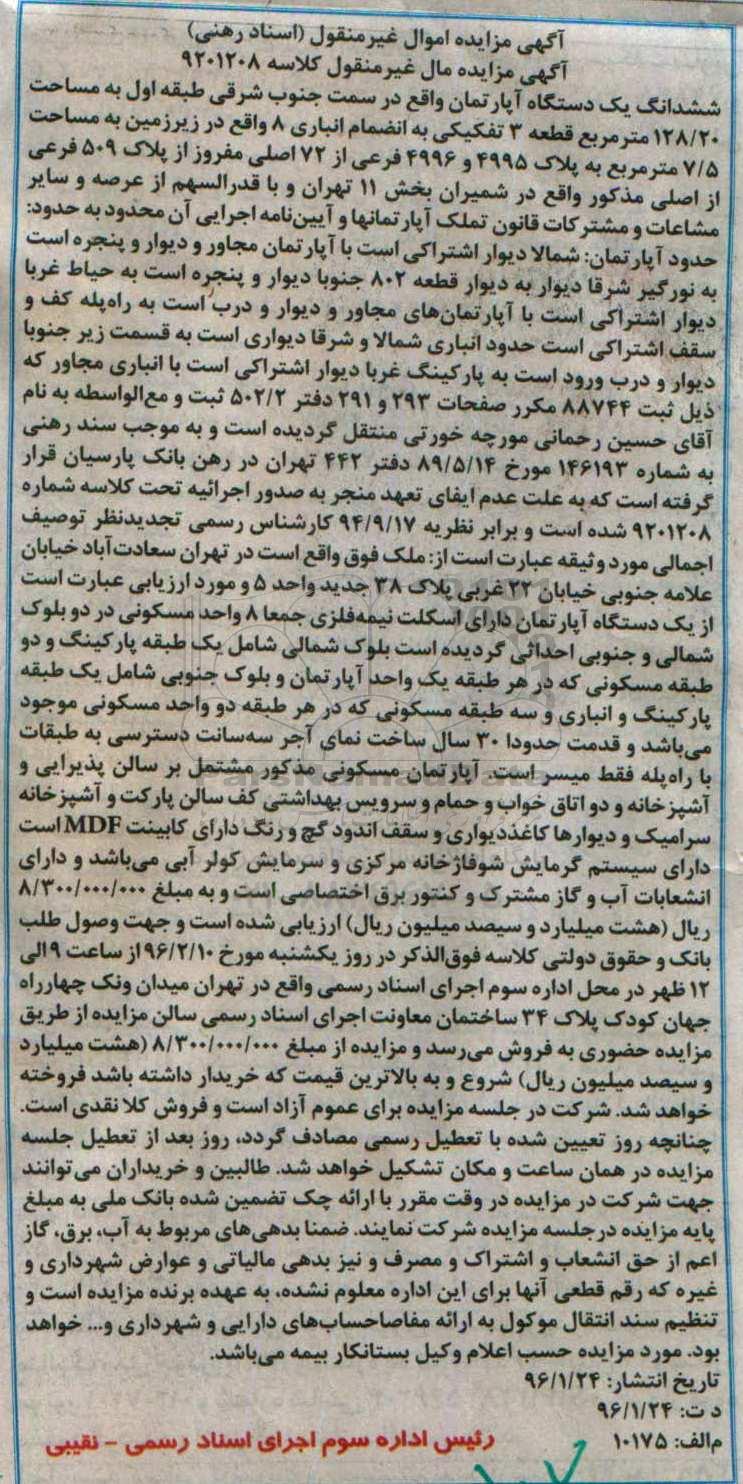 آگهی مزایده اموال غیرمنقول (اسناد رهنی)
آگهی مزایده مال غیرمنقول کلاسه ۹۲۰۱۲۰۸
ششدانگ یک دستگاه آپارتمان واقع در سمت جنوب شرقی طبقه اول به مساحت
۱۲۸/۲۰ مترمربع قطعه ۳ تفکیکی به انضمام انباری ۸ واقع در زیرزمین به مساحت
۷/۵ مترمربع به پلاک ۴۹۹۵ و ۴۹۹۶ فرعی از ۷۲ اصلی مفروز از پلاک ۵۰۹ فرعی
از اصلی مذکور واقع در شمیران بخش ۱۱ تهران و با قدرالسهم از عرصه و سایر
مشاعات و مشترکات قانون تملک آپارتمانها و آیین‌نامه اجرایی آن محدود به حدود:
حدود آپارتمان: شمالا دیوار اشتراکی است با آپارتمان مجاور و دیوار و پنجره است
به نورگیر شرقا دیوار به دیوار قطعه ۸۰۲ جنوبا دیوار و پنجره است به حیاط غربا
دیوار اشتراکی است با آپارتمان‌های مجاور و دیوار و درب است به راه‌پله کف و
سقف اشتراکی است حدود انباری شمالا و شرقا دیواری است به قسمت زیر جنوبا
دیوار و درب ورود است به پارکینگ غربا دیوار اشتراکی است با انباری مجاور که
ذیل ثبت ۸۸۷۴۴ مکرر صفحات ۲۹۳ و ۲۹۱ دفتر ۵۰۲/۲ ثبت و مع‌الواسطه به نام
آقای حسین رحمانی مورچه خورتی منتقل گردیده است و به موجب سند رهنی
به شماره ۱۴۶۱۹۳ مورخ ۸۹/۵/۱۴ دفتر ۴۴۲ تهران در رهن بانک پارسیان قرار
گرفته است که به علت عدم ایفای تعهد منجر به صدور اجرائیه تحت کلاسه شماره
۹۲۰۱۲۰۸ شده است و برابر نظریه ۹۴/۹/۱۷ کارشناس رسمی تجدیدنظر توصیف
اجمالی مورد وثیقه عبارت است از: ملک فوق واقع است در تهران سعادت‌آباد خیابان
علامه جنوبی خیابان ۲۲ غربی پلاک ۳۸ جدید واحد ۵ و مورد ارزیابی عبارت است
از یک دستگاه آپارتمان دارای اسکلت نیمه‌فلزی جمعا ۸ واحد مسکونی در دو بلوک
شمالی و جنوبی احداثی گردیده است بلوک شمالی شامل یک طبقه پارکینگ و دو
طبقه مسکونی که در هر طبقه یک واحد آپارتمان و بلوک جنوبی شامل یک طبقه
پارکینگ و انباری و سه طبقه مسکونی که در هر طبقه دو واحد مسکونی موجود
می‌باشد و قدمت حدودا ۳۰ سال ساخت نمای آجر سه‌سانت دسترسی به طبقات
با راه‌پله فقط میسر است. آپارتمان مسکونی مذکور مشتمل بر سالن پذیرایی و
آشپزخانه و دو اتاق خواب و حمام و سرویس بهداشتی کف سالن پارکت و آشپزخانه
سرامیک و دیوارها کاغذدیواری و سقف اندود گچ و رنگ دارای کابینت MDF است
دارای سیستم گرمایش شوفاژخانه مرکزی و سرمایش کولر آبی می‌باشد و دارای
انشعابات آب و گاز مشترک و کنتور برق اختصاصی است و به مبلغ ۸/۳۰۰/۰۰۰/۰۰۰
ریال (هشت میلیارد و سیصد میلیون ریال) ارزیابی شده است و جهت وصول طلب
بانک و حقوق دولتی کلاسه فوق‌الذکر در روز یکشنبه مورخ ۹۶/۲/۱۰ از ساعت ۹ الی
۱۲ ظهر در محل اداره سوم اجرای اسناد رسمی واقع در تهران میدان ونک چهارراه
جهان کودک پلاک ۳۴ ساختمان معاونت اجرای اسناد رسمی سالن مزایده از طریق
مزایده حضوری به فروش می‌رسد و مزایده از مبلغ ۸/۳۰۰/۰۰۰/۰۰۰ (هشت میلیارد
و سیصد میلیون ریال) شروع و به بالاترین قیمت که خریدار داشته باشد فروخته
خواهد شد. شرکت در جلسه مزایده برای عموم آزاد است و فروش کلا نقدی است.
چنانچه روز تعیین شده با تعطیل رسمی مصادف گردد، روز بعد از تعطیل جلسه
مزایده در همان ساعت و مکان تشکیل خواهد شد. طالبین و خریداران می‌توانند
جهت شرکت در مزایده در وقت مقرر با ارائه چک تضمین شده بانک ملی به مبلغ
پایه مزایده درجلسه مزایده شرکت نمایند. ضمنا بدهی‌های مربوط به آب، برق، گاز
اعم از حق انشعاب و اشتراک و مصرف و نیز بدهی مالیاتی و عوارض شهرداری و
غیره که رقم قطعی آنها برای این اداره معلوم نشده، به عهده برنده مزایده است و
تنظیم سند انتقال موکول به ارائه مفاصاحساب‌های دارایی و شهرداری و... خواهد
بود. مورد مزایده حسب اعلام وکیل بستانکار بیمه می‌باشد.
تاریخ انتشار: ۹۶/۱/۲۴
د ت: ۹۶/۱/۲۴
م‌الف: ۱۰۱۷۵
رئیس اداره سوم اجرای اسناد رسمی - نقیبی